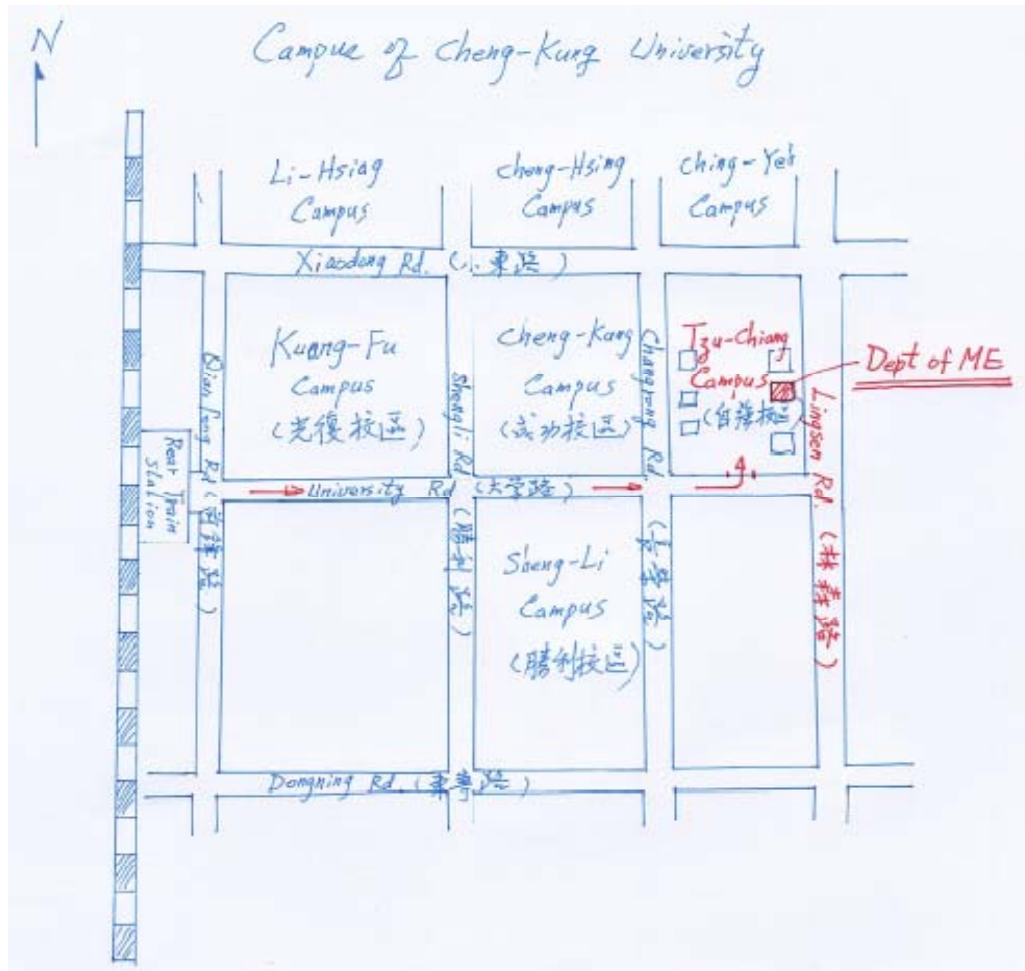 N
Campus of Cheng-Kung University
Li-Hsiag
Campus
Cheng-Hsing
Campus
Ching-Yeh
Campus
Xiaodong Rd. (小東路)
Kuang-Fu
Campus
(光復校區)
Cheng-Kung
Campus
(成功校區)
Tzu-Chiang
Campus
(自強校區)
Dept of ME
Qianfong Rd (前鋒路)
Shengli Rd (勝利路)
Changrong Rd. (長榮路)
Lingsen Rd. (林森路)
Rear Train
Station
University Rd (大学路)
Sheng-Li
Campus
(勝利校區)
Dongning Rd. (東寧路)